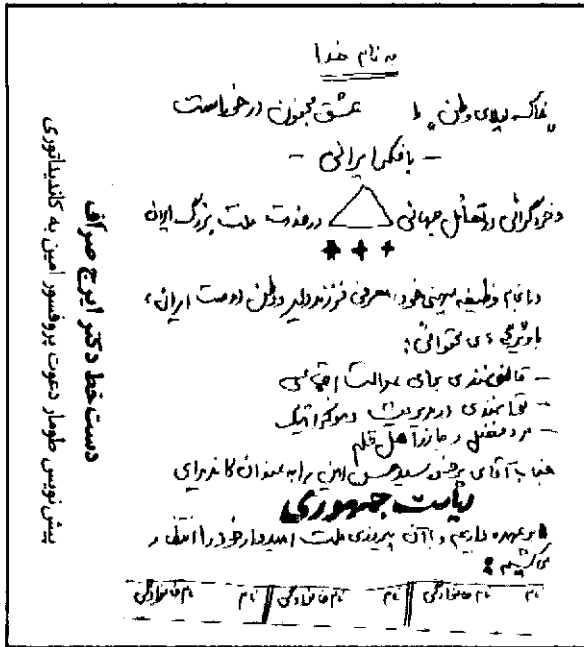 به نام خدا
خاک لیلای وطن را عشق مجنون در خور است
- با فکر ایرانی -
خردگرائی و تعامل جهانی در خدمت ملت بزرگ ایران
+ + +
و انجام وظیفه میهنی خود، معرفی فرزند دلیر و وطن دوست ایران،
با ویژگی های محتوائی:
- قانونمندی برای عدالت اجتماعی
- توانمندی در مدیریت دموکراتیک
- مردمنش و مانز اهل قلم
جناب آقای پرفسور سید حسن امین را به عنوان کاندیدای
ریاست جمهوری
بر عهده داریم و با آن پیروزی ملت امیدوار خود را انتظار
می کشیم:
نام نام خانوادگی نام نام خانوادگی نام نام خانوادگی
دست خط دکتر ایرج صراف
پیش نویس طومار دعوت پروفسور امین به کاندیداتوری